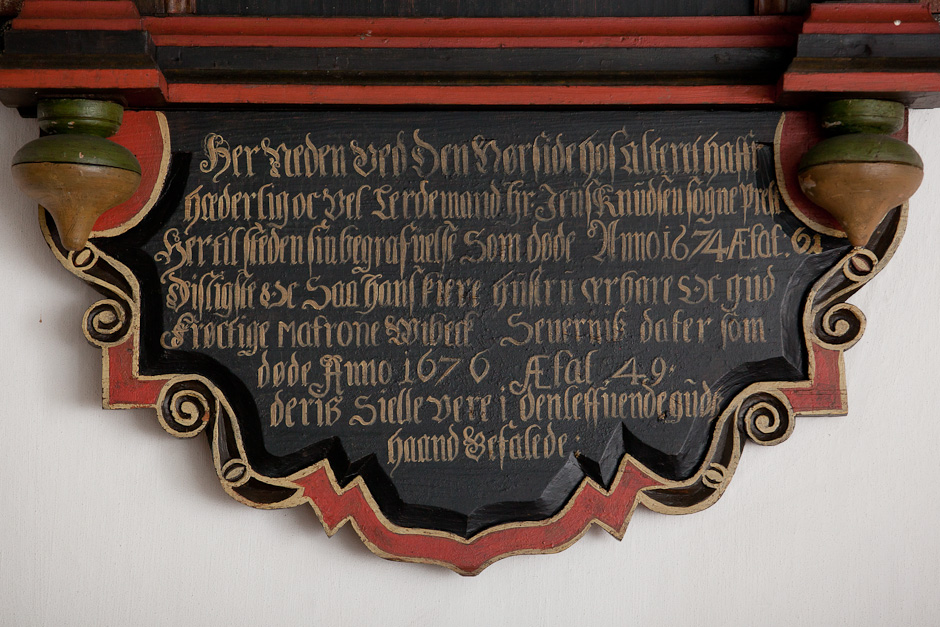 Her Neden Ved Den Nørside hos alteret haffr
hæderlig oc Vel Lerdemand hr Jens Knudsen sogne Prest
Her til steden sin begrafuelse Som døde Anno 1674 Ætat. 61
Disligste oc Saa hans kiere hustru ærbare Oc gud
frøctige Matrone Wibeck Severniß dater som
døde Anno 1676 Ætat 49.
deriß Sielle vere i den leffuende guds
haand Befalede.